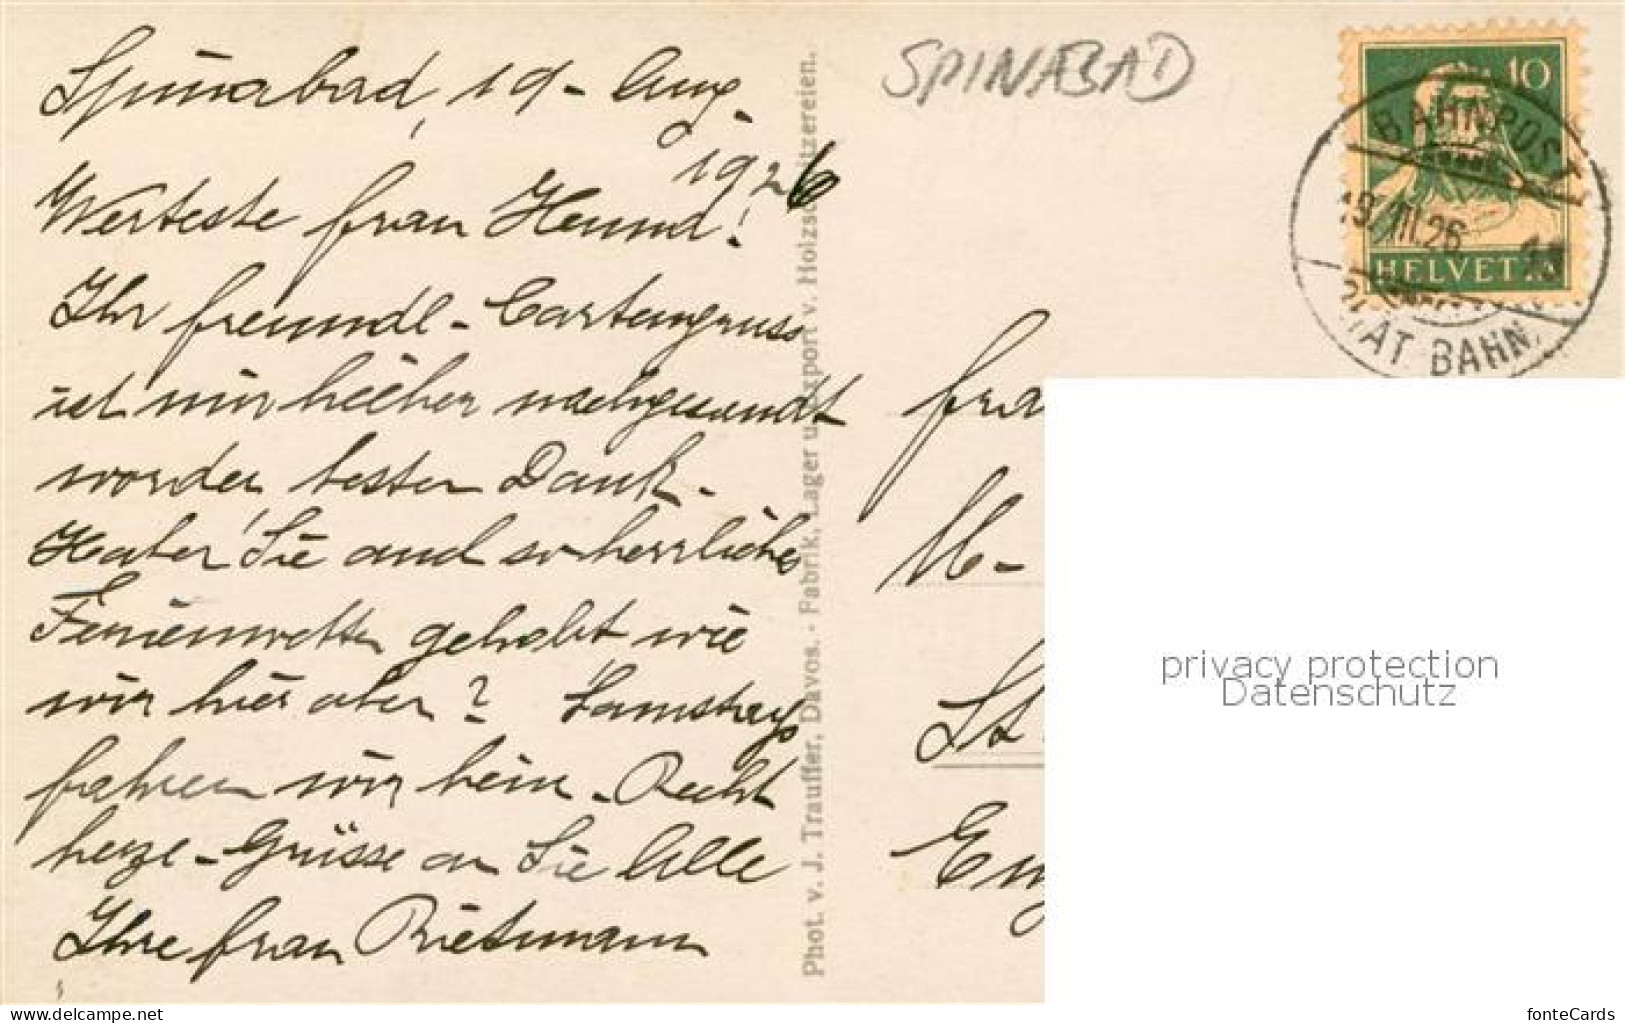 Spinabad, 19 - Aug.
1926
Werteste Frau Hemml!
Ihr freundl - Cartengruss
ist mir hieher nachgesandt
worden, besten Dank -
Haben Sie auch so herrliches
Ferienwetter gehabt wie
wir hier oben? Samstags
fahren wir heim - Recht
herzl - Grüsse an Sie Alle
Ihre Frau Rietmann
Phot. v. J. Trauffer, Davos. - Fabrik, Lager u. Export v. Holzschnitzereien.
SPINABAD
10
HELVETIA
BAHNPOST
19.VIII.26
AT BAHN
Fra
M -
St
privacy protection
Datenschutz
ansichtskarten-center.de
fonteCards